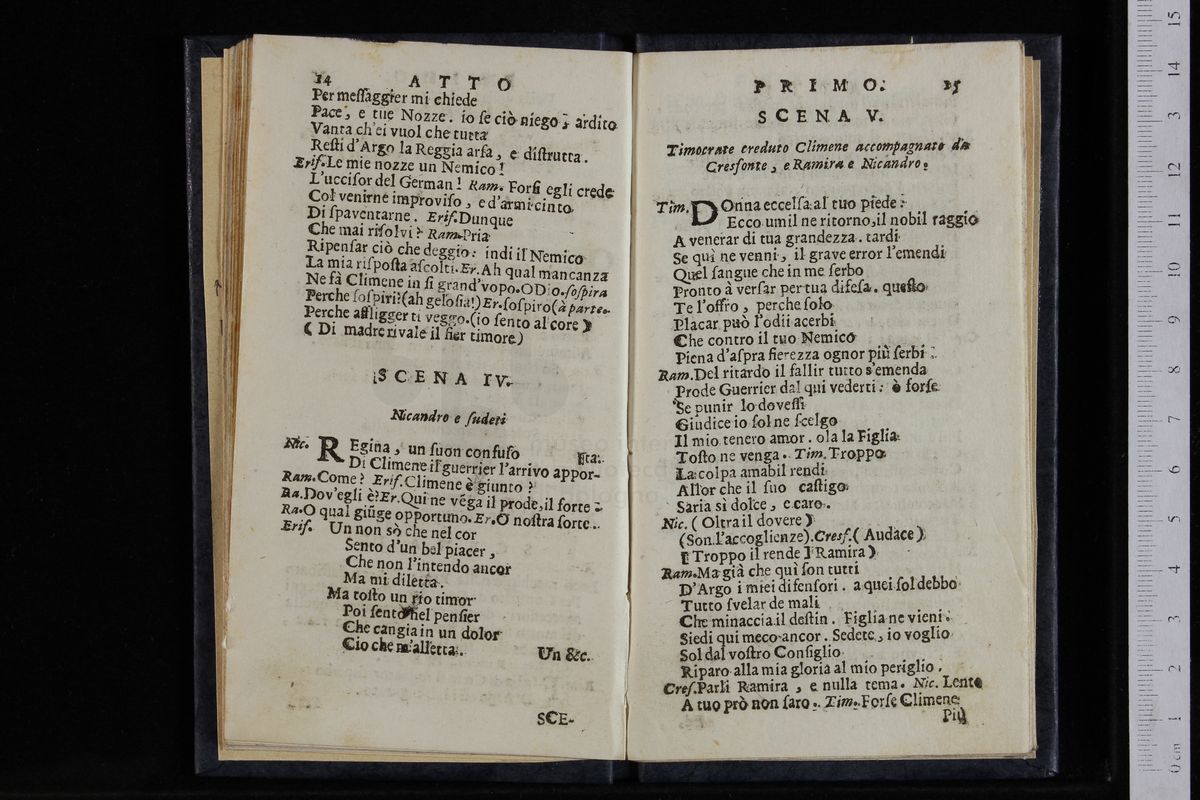 14 ATTO
Per meſſaggier mi chiede
Pace, e tue Nozze. io ſe ciò niego, ardito
Vanta ch'ei vuol che tutta
Reſti d'Argo la Reggia arſa, e diſtrutta.
Eriſ. Le mie nozze un Nemico!
L'ucciſor del German! Ram. Forſi egli crede
Col venirne improviſo, e d'armi cinto
Di ſpaventarne. Eriſ. Dunque
Che mai riſolvi? Ram. Pria
Ripenſar ciò che deggio: indi il Nemico
La mia riſpoſta aſcolti. Er. Ah qual mancanza
Ne fà Climene in ſi grand'vopo. O Dio. ſoſpira
Perche ſoſpiri? (ah geloſia!) Er. ſoſpiro (à parte.
Perche affligger ti veggo. (io ſento al core)
(Di madre rivale il fier timore)
SCENA IV.
Nicandro e ſudeti
Nic. REgina, un ſuon confuſo [ta.
Di Climene il guerrier l'arrivo appor-
Ram. Come? Eriſ. Climene è giunto?
Ra. Dov'egli è? Er. Qui ne vẽga il prode, il forte
Ra. O qual giũge opportuno. Er. O noſtra ſorte.
Eriſ. Un non sò che nel cor
Sento d'un bel piacer,
Che non l'intendo ancor
Ma mi diletta.
Ma toſto un rio timor
Poi ſento nel penſier
Che cangia in un dolor
Cio che m'alletta. Un &c.
SCE-
PRIMO. 15
SCENA V.
Timocrate creduto Climene accompagnato da
Cresfonte, e Ramira e Nicandro.
Tim. DOnna eccelſa al tuo piede
Ecco umil ne ritorno, il nobil raggio
A venerar di tua grandezza. tardi
Se quì ne venni, il grave error l'emendi
Quel ſangue che in me ſerbo
Pronto à verſar per tua difeſa. queſto
Te l'offro, perche ſolo
Placar può l'odii acerbi
Che contro il tuo Nemico
Piena d'aſpra fierezza ognor più ſerbi.
Ram. Del ritardo il fallir tutto s'emenda
Prode Guerrier dal qui vederti: e forſe
Se punir lo doveſſi
Giudice io ſol ne ſcelgo
Il mio tenero amor. ola la Figlia
Toſto ne venga. Tim. Troppo
La colpa amabil rendi
Allor che il ſuo caſtigo
Saria sì dolce, e caro.
Nic. (Oltra il dovere)
(Son l'accoglienze). Cresf. (Audace)
[Troppo il rende] Ramira)
Ram. Ma già che quì ſon tutti
D'Argo i miei difenſori. a quei ſol debbo
Tutto ſvelar de mali
Che minaccia il deſtin. Figlia ne vieni.
Siedi qui meco ancor. Sedete, io voglio
Sol dal voſtro Conſiglio
Riparo alla mia gloria al mio periglio.
Creſ. Parli Ramira, e nulla tema. Nic. Lento
A tuo prò non ſaro. Tim. Forſe Climene
Più